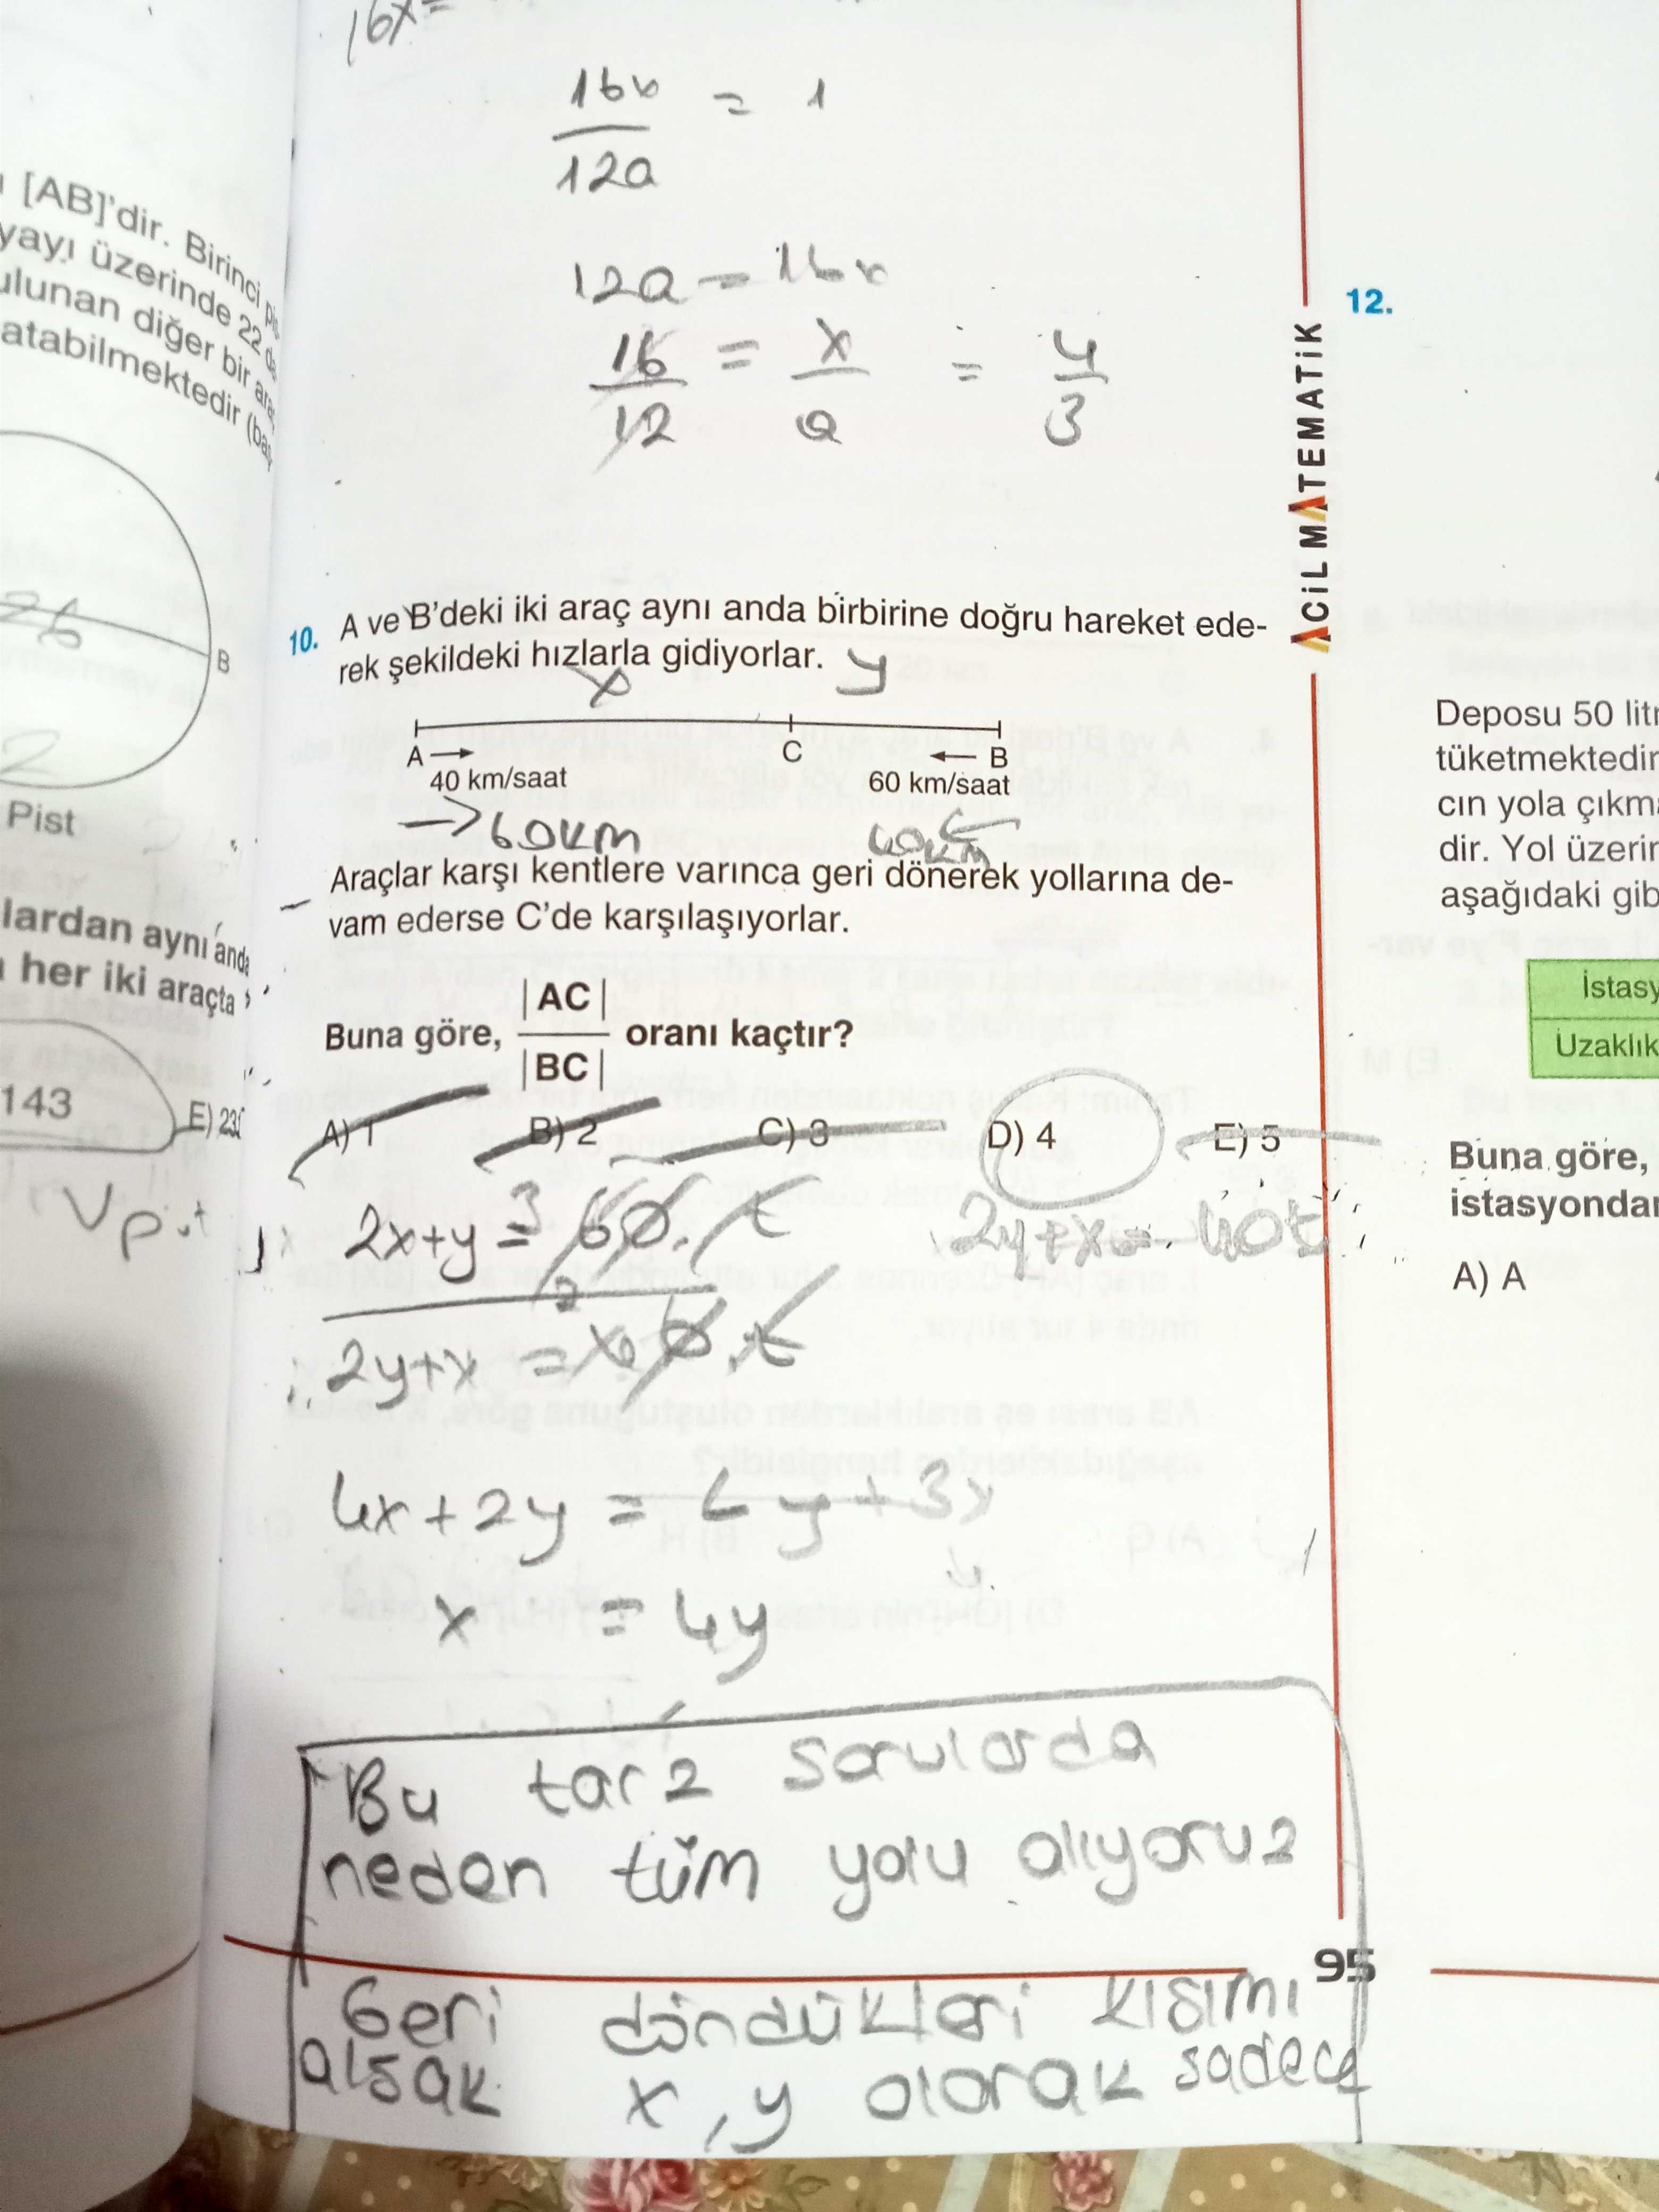 16x=
16x = 1
12a
12a = 16x
16 = x = 4
12 a 3
[AB]'dir. Birinci
yayı üzerinde 22
ulunan diğer bir
atabilmektedir
26
B
2
Pist
lardan aynı anda
her iki araçta
143
E) 23
10. A ve B'deki iki araç aynı anda birbirine doğru hareket ede-
rek şekildeki hızlarla gidiyorlar.
x y
A C B
40 km/saat 60 km/saat
60km 40km
Araçlar karşı kentlere varınca geri dönerek yollarına de-
vam ederse C'de karşılaşıyorlar.
|AC|
Buna göre, oranı kaçtır?
|BC|
A) 1 B) 2 C) 3 D) 4 E) 5
2x+y = 3 60.t
2y+x = 40t
2y+x = 2 .t
4x+2y = 6y+3x
x = 4y
Bu tarz sorularda
neden tüm yolu alıyoruz
Geri döndükleri kısımı
alsak x,y olarak sadece
95
ACİL MATEMATİK
12.
Deposu 50
tüketmektedir
cın yola
dir. Yol
aşağıdaki
Uzaklık
Buna göre,
A) A